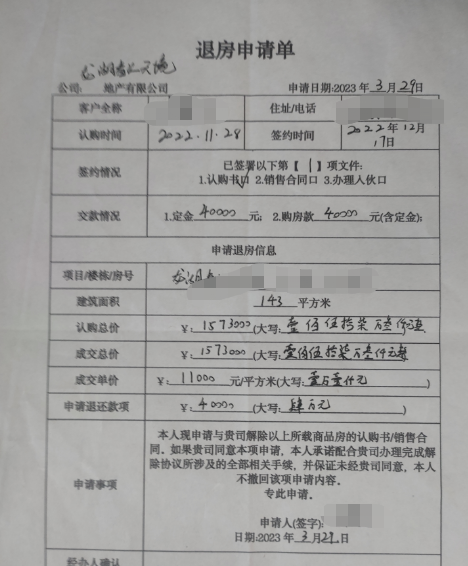 退房申请单
公司: 地产有限公司 申请日期:2023年3月29日
客户全称 住址/电话
认购时间 2022.11.28 签约时间 2022年12月17日
签约情况 已签署以下第【1】项文件:
1.认购书口 2.销售合同口 3.办理入伙口
交款情况 1.定金 40000 元; 2.购房款 40000 元(含定金);
申请退房信息
项目/楼栋/房号 龙湖
建筑面积 143 平方米
认购总价 ¥: 1573000 (大写: 壹佰伍拾柒万叁仟元整)
成交总价 ¥: 1573000 (大写: 壹佰伍拾柒万叁仟元整)
成交单价 ¥: 11000 元/平方米(大写: 壹万壹仟元 )
申请退还款项 ¥: 40000 (大写: 肆万元 )
申请事项
本人现申请与贵司解除以上所载商品房的认购书/销售合
同。如果贵司同意本项申请,本人承诺配合贵司办理完成解
除协议所涉及的全部相关手续,并保证未经贵司同意,本人
不撤回该项申请内容。
专此申请。
申请人(签字):
日期:2023年3月29日
经办人确认